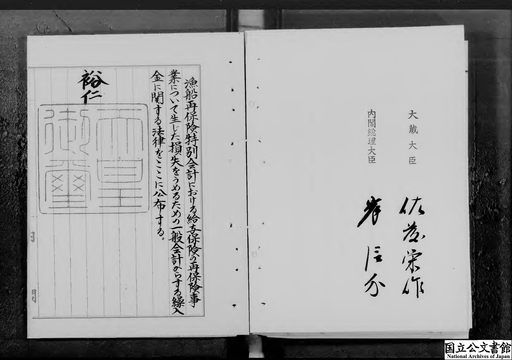 漁船再保険特別会計における給与保険の再保険事
業について生じた損失をうめるための一般会計からする繰入
金に関する法律をここに公布する。
裕仁
天皇御璽
大蔵大臣
佐藤栄作
内閣総理大臣
岸信介
国立公文書館
National Archives of Japan